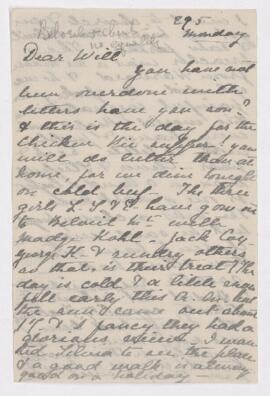 295
Monday
Dear Will
you have not
been overdone with
letters have you son?
& this is the day for the
chicken pie supper! you
will do better than at
home, for we dine tonight
on cold beef - The three
girls L. S. & I. have gone on
to with
Madge Kohl - Jack Coy
George K. & sundry others
so that is their treat. The
day is cold & a little snow
fell early this a.m. but
the sun came out about
& I fancy they had a
glorious
to see the place
& a good walk is always
good on a holiday -